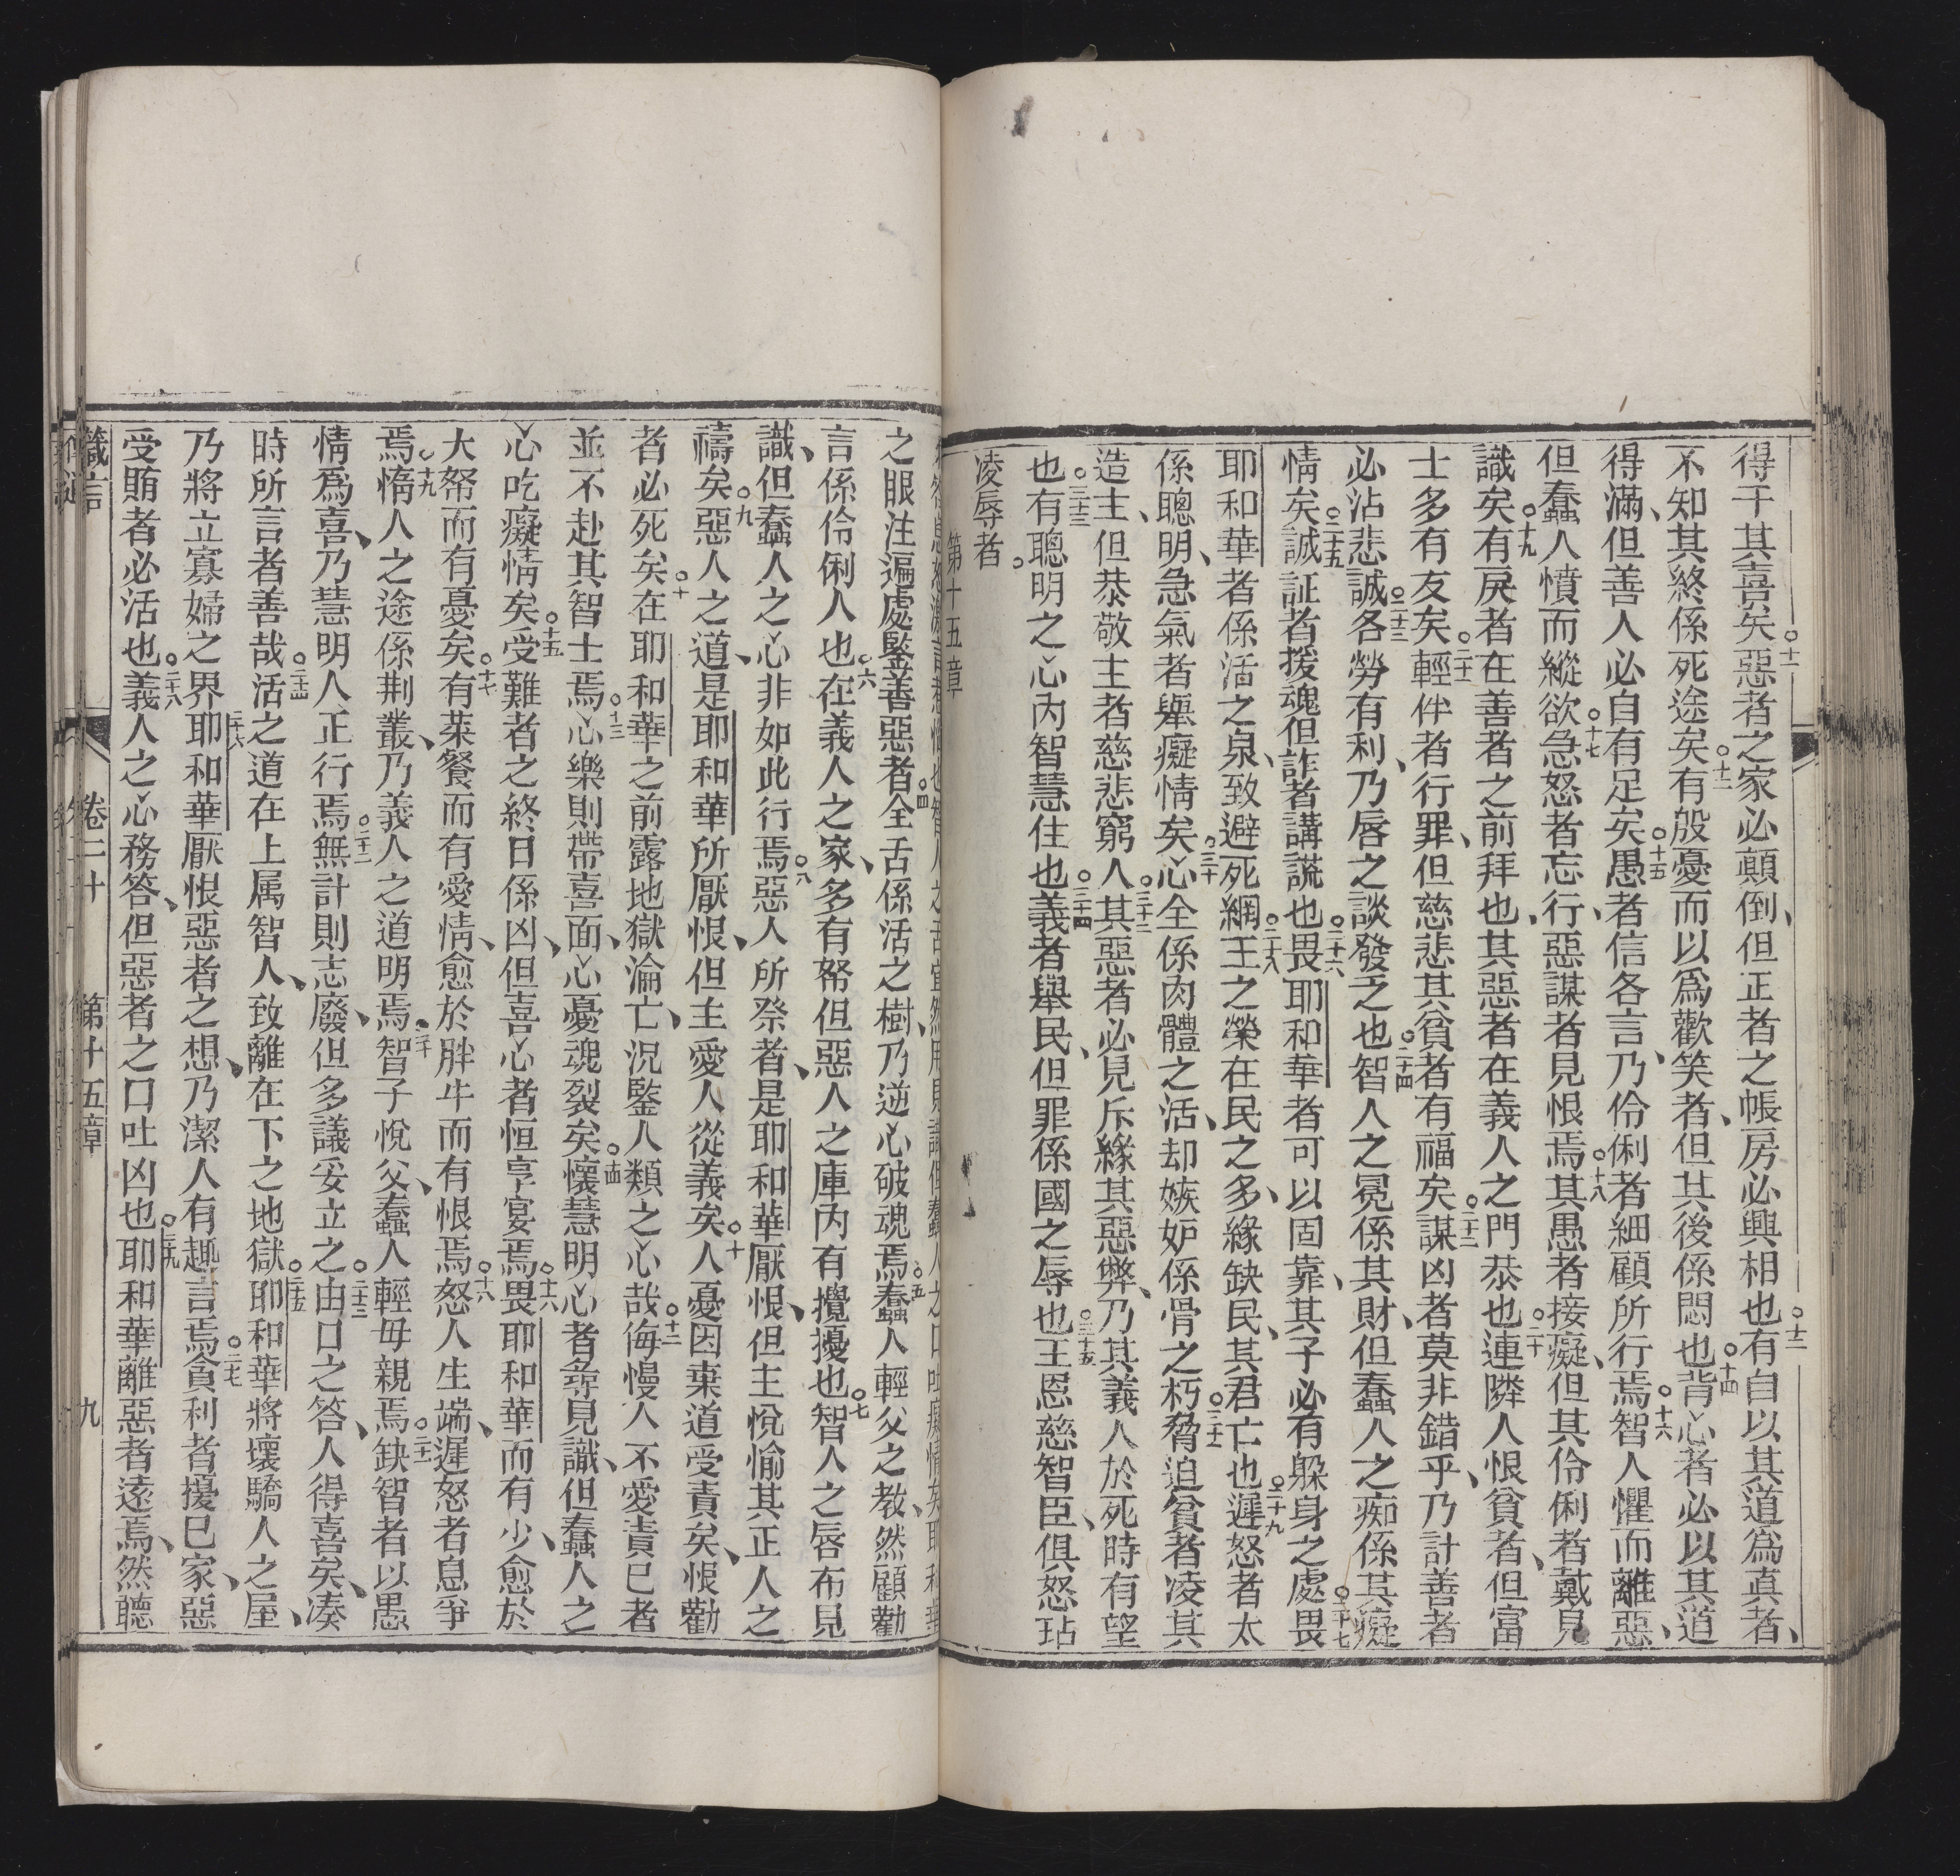 得干其喜矣○十一惡者之家必顛倒、但正者之帳房必興相也○十二有自以其道為真者、
不知其終係死途矣○十三有殷憂而以為歡笑者、但其後係悶也○十四背心者必以其道
得滿、但善人必自有足矣○十五愚者信各言、乃伶俐者細顧所行焉○十六智人懼而離惡、
但蠢人憤而縱欲○十七急怒者忘行、惡謀者見恨焉○十八其愚者接癡、但其伶俐者戴見
識矣○十九有戾者在善者之前拜也、其惡者在義人之門恭也○二十連隣人恨貧者、但富
士多有友矣○二十一輕伴者行罪、但慈悲其貧者有福矣○二十二謀凶者莫非錯乎、乃計善者
必沾悲誠○二十三各勞有利、乃唇之談發乏也○二十四智人之冕係其財、但蠢人之痴係其癡
情矣○二十五誠証者援魂但詐者講謊也○二十六畏耶和華者可以固靠、其子必有躲身之處○二十七畏
耶和華者係活之泉、致避死網○二十八王之榮在民之多、緣缺民、其君亡也○二十九遲怒者太
係聰明、急氣者舉癡情矣○三十心全係肉體之活、却嫉妒係骨之朽○三十一脅迫貧者凌其
造主、但恭敬主者慈悲窮人○三十二其惡者必見斥緣其惡弊、乃其義人於死時有望
也○三十三有聰明之心內智慧住也○三十四義者舉民、但罪係國之辱也○三十五王恩慈智臣、俱怒玷
凌辱者○
第十五章
之眼注遍處鑒善惡者○四全舌係活之樹、乃逆心破魂焉○五蠢人輕父之教、然顧勸
言係伶俐人也○六在義人之家、多有帑但惡人之庫內有攪擾也○七智人之唇布見
識、但蠢人之心非如此行焉○八惡人所祭者、是耶和華厭恨、但主悅愉其正人之
禱矣○九惡人之道、是耶和華所厭恨、但主愛人從義矣○十人憂因棄道受責矣、恨勸
者必死矣○十一在耶和華之前露地獄淪亡、況鑒人類之心哉○十二侮慢人不愛責已者
並不赴其智士焉○十三心樂則帶喜面、心憂魂裂矣○十四懷慧明心者尋見識、但蠢人之
心吃癡情矣○十五受難者之終日係凶、但喜心者恒亨宴焉○十六畏耶和華而有少、愈於
大帑而有憂矣○十七有菜餐而有愛情、愈於胖牛而有恨焉○十八怒人生端、遲怒者息爭
焉○十九惰人之途係荆叢、乃義人之道明焉○二十智子悅父、蠢人輕毋親焉○二十一缺智者以愚
情為喜、乃慧明人正行焉○二十二無計則志廢、但多議妥立之○二十三由口之答、人得喜矣、湊
時所言者善哉○二十四活之道在上属智人、致離在下之地獄○二十五耶和華將壞驕人之屋、
乃將立寡婦之界○二十六耶和華厭恨惡者之想、乃潔人有趣言焉○二十七貪利者擾已家、惡
受賄者必活也○二十八義人之心務答、但惡者之口吐凶也○二十九耶和華離惡者遠焉、然聽
箴言　卷二十　第十五章　九